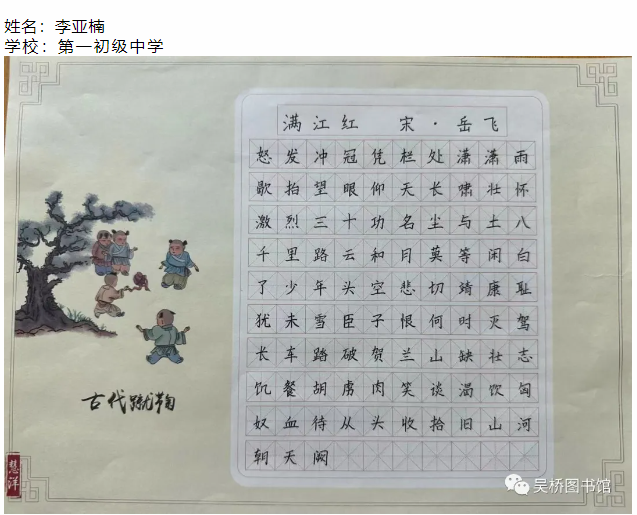 姓名：李亚楠
学校：第一初级中学
满江红 宋·岳飞
怒发冲冠凭栏处潇潇雨
歇抬望眼仰天长啸壮怀
激烈三十功名尘与土八
千里路云和月莫等闲白
了少年头空悲切靖康耻
犹未雪臣子恨何时灭驾
长车踏破贺兰山缺壮志
饥餐胡虏肉笑谈渴饮匈
奴血待从头收拾旧山河
朝天阙
古代蹴鞠
慧洋
吴桥图书馆